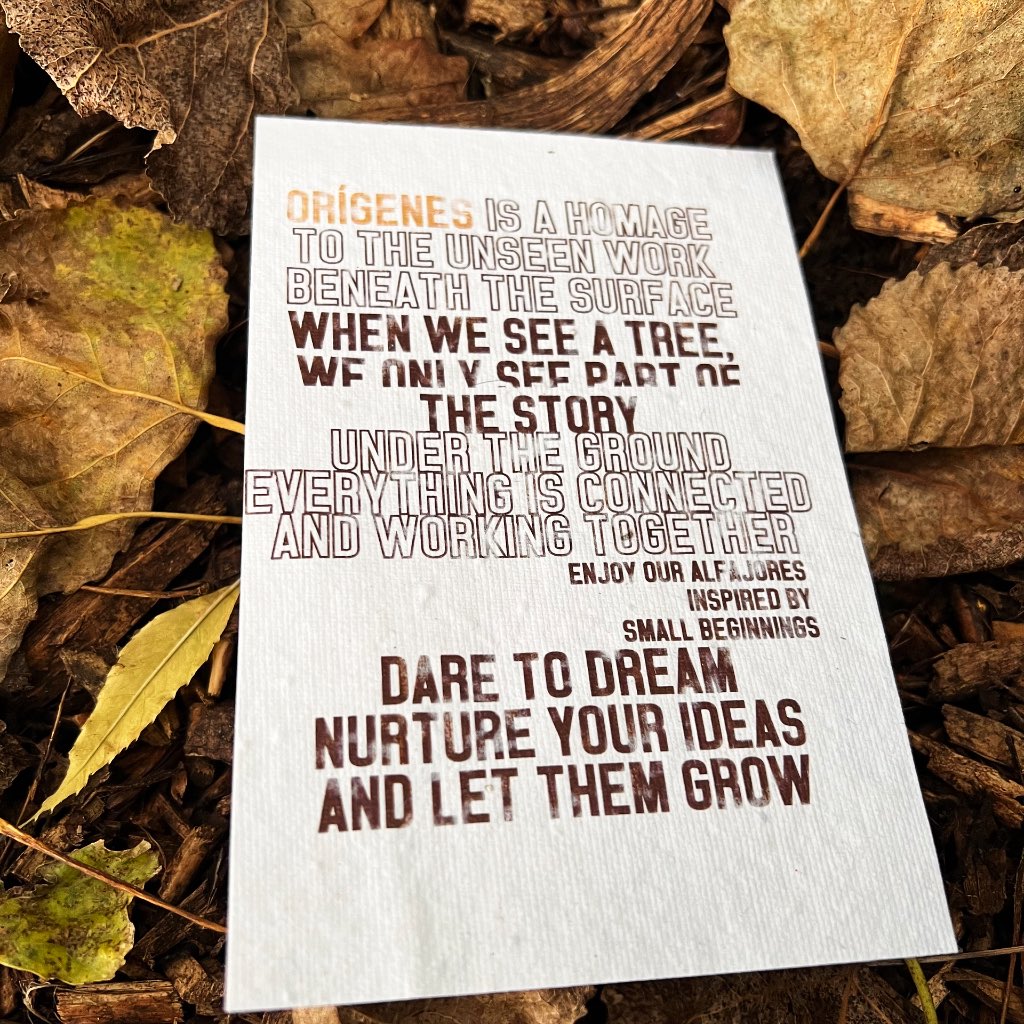 ORÍGENES IS A HOMAGE
TO THE UNSEEN WORK
BENEATH THE SURFACE
WHEN WE SEE A TREE,
WE ONLY SEE PART OF
THE STORY
UNDER THE GROUND
EVERYTHING IS CONNECTED
AND WORKING TOGETHER
ENJOY OUR ALFAJORES
INSPIRED BY
SMALL BEGINNINGS
DARE TO DREAM
NURTURE YOUR IDEAS
AND LET THEM GROW